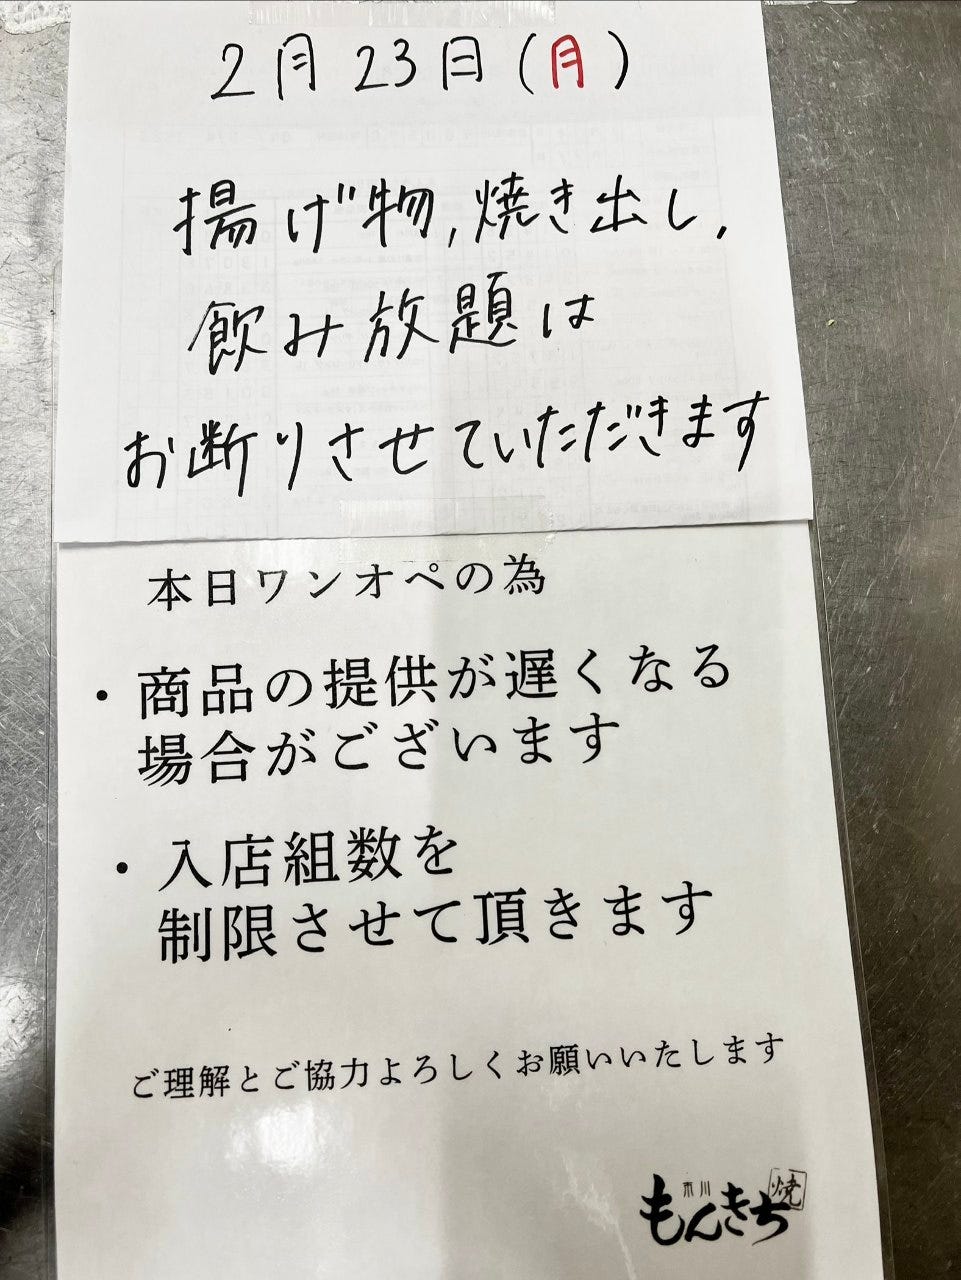 2月23日(月)
揚げ物,焼き出し,
飲み放題は
お断りさせていただきます
本日ワンオペの為
・商品の提供が遅くなる
場合がございます
・入店組数を
制限させて頂きます
ご理解とご協力よろしくお願いいたします
市川
もんきち
焼